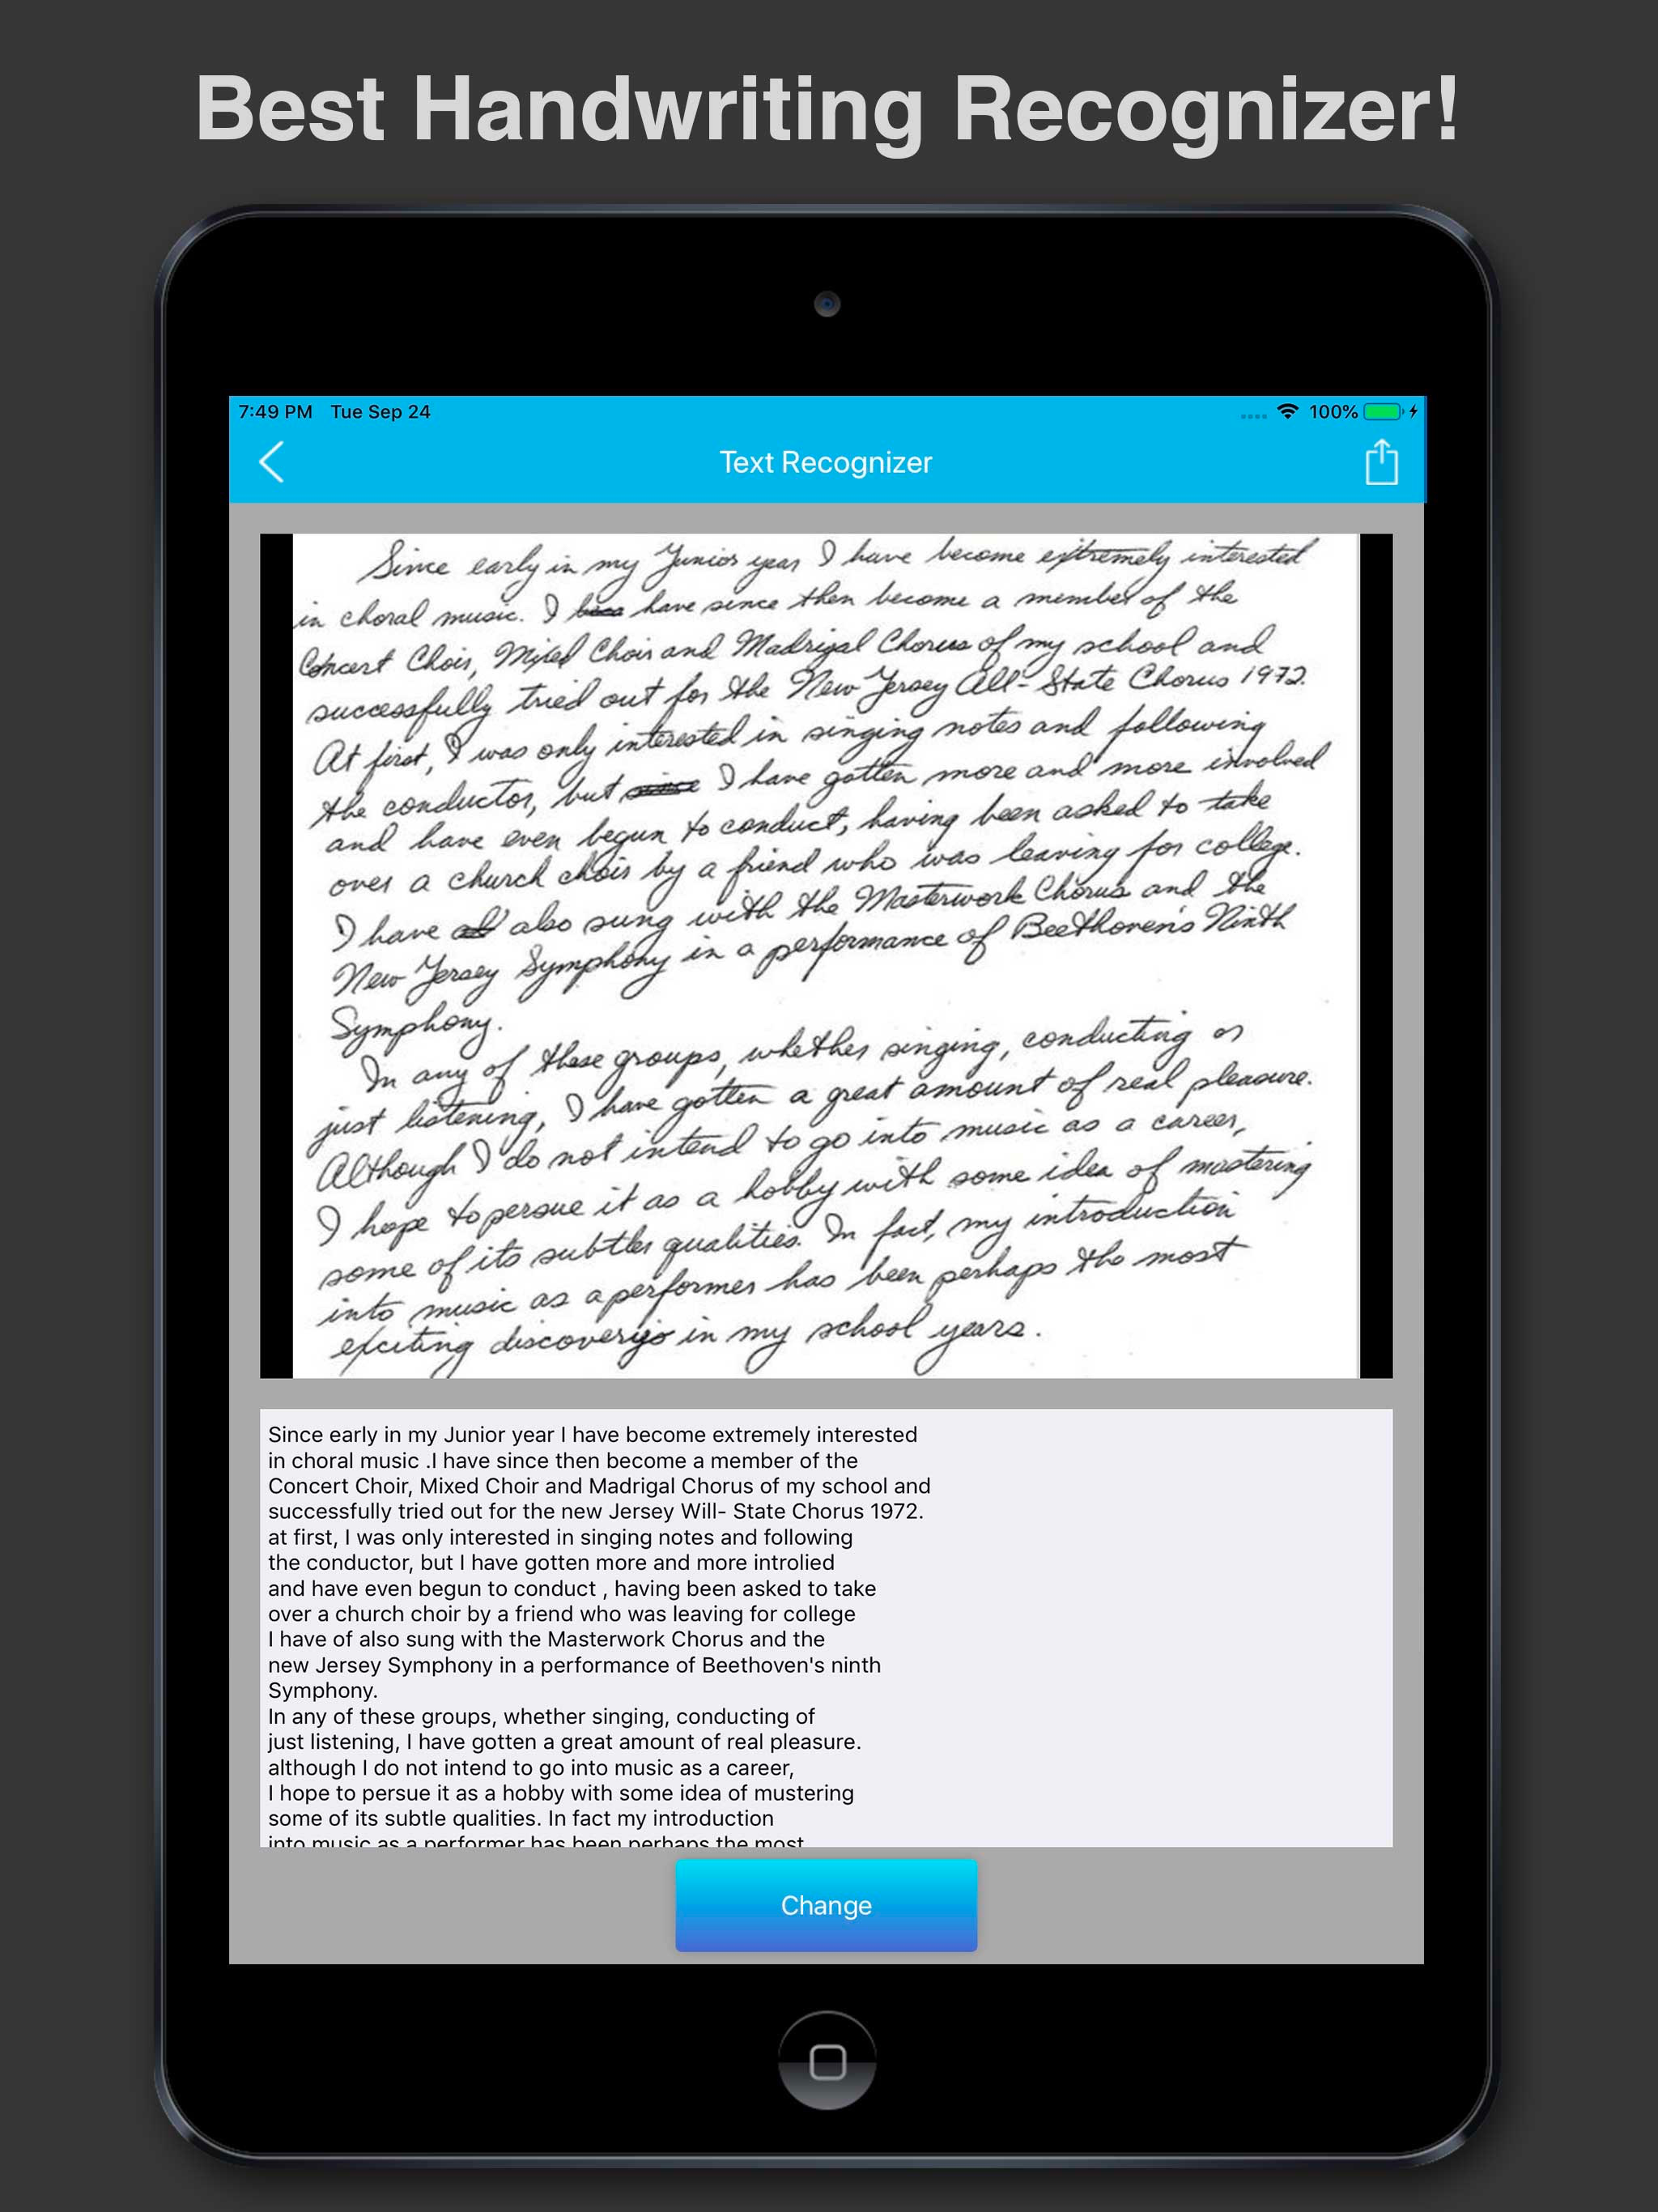 Best Handwriting Recognizer!
7:49 PM Tue Sep 24
100%
Text Recognizer
Since early in my Junior year I have become extremely interested
in choral music. I have since then become a member of the
Concert Choir, Mixed Choir and Madrigal Chorus of my school and
successfully tried out for the New Jersey All-State Chorus 1972.
At first, I was only interested in singing notes and following
the conductor, but since I have gotten more and more involved
and have even begun to conduct, having been asked to take
over a church choir by a friend who was leaving for college.
I have also sung with the Masterwork Chorus and the
New Jersey Symphony in a performance of Beethoven's Ninth
Symphony.
In any of these groups, whether singing, conducting or
just listening, I have gotten a great amount of real pleasure.
Although I do not intend to go into music as a career,
I hope to persue it as a hobby with some idea of mastering
some of its subtler qualities. In fact, my introduction
into music as a performer has been perhaps the most
exciting discovery in my school years.
Since early in my Junior year I have become extremely interested
in choral music .I have since then become a member of the
Concert Choir, Mixed Choir and Madrigal Chorus of my school and
successfully tried out for the new Jersey Will- State Chorus 1972.
at first, I was only interested in singing notes and following
the conductor, but I have gotten more and more introlied
and have even begun to conduct , having been asked to take
over a church choir by a friend who was leaving for college
I have of also sung with the Masterwork Chorus and the
new Jersey Symphony in a performance of Beethoven's ninth
Symphony.
In any of these groups, whether singing, conducting of
just listening, I have gotten a great amount of real pleasure.
although I do not intend to go into music as a career,
I hope to persue it as a hobby with some idea of mustering
some of its subtle qualities. In fact my introduction
into music as a performer has been perhaps the most
Change